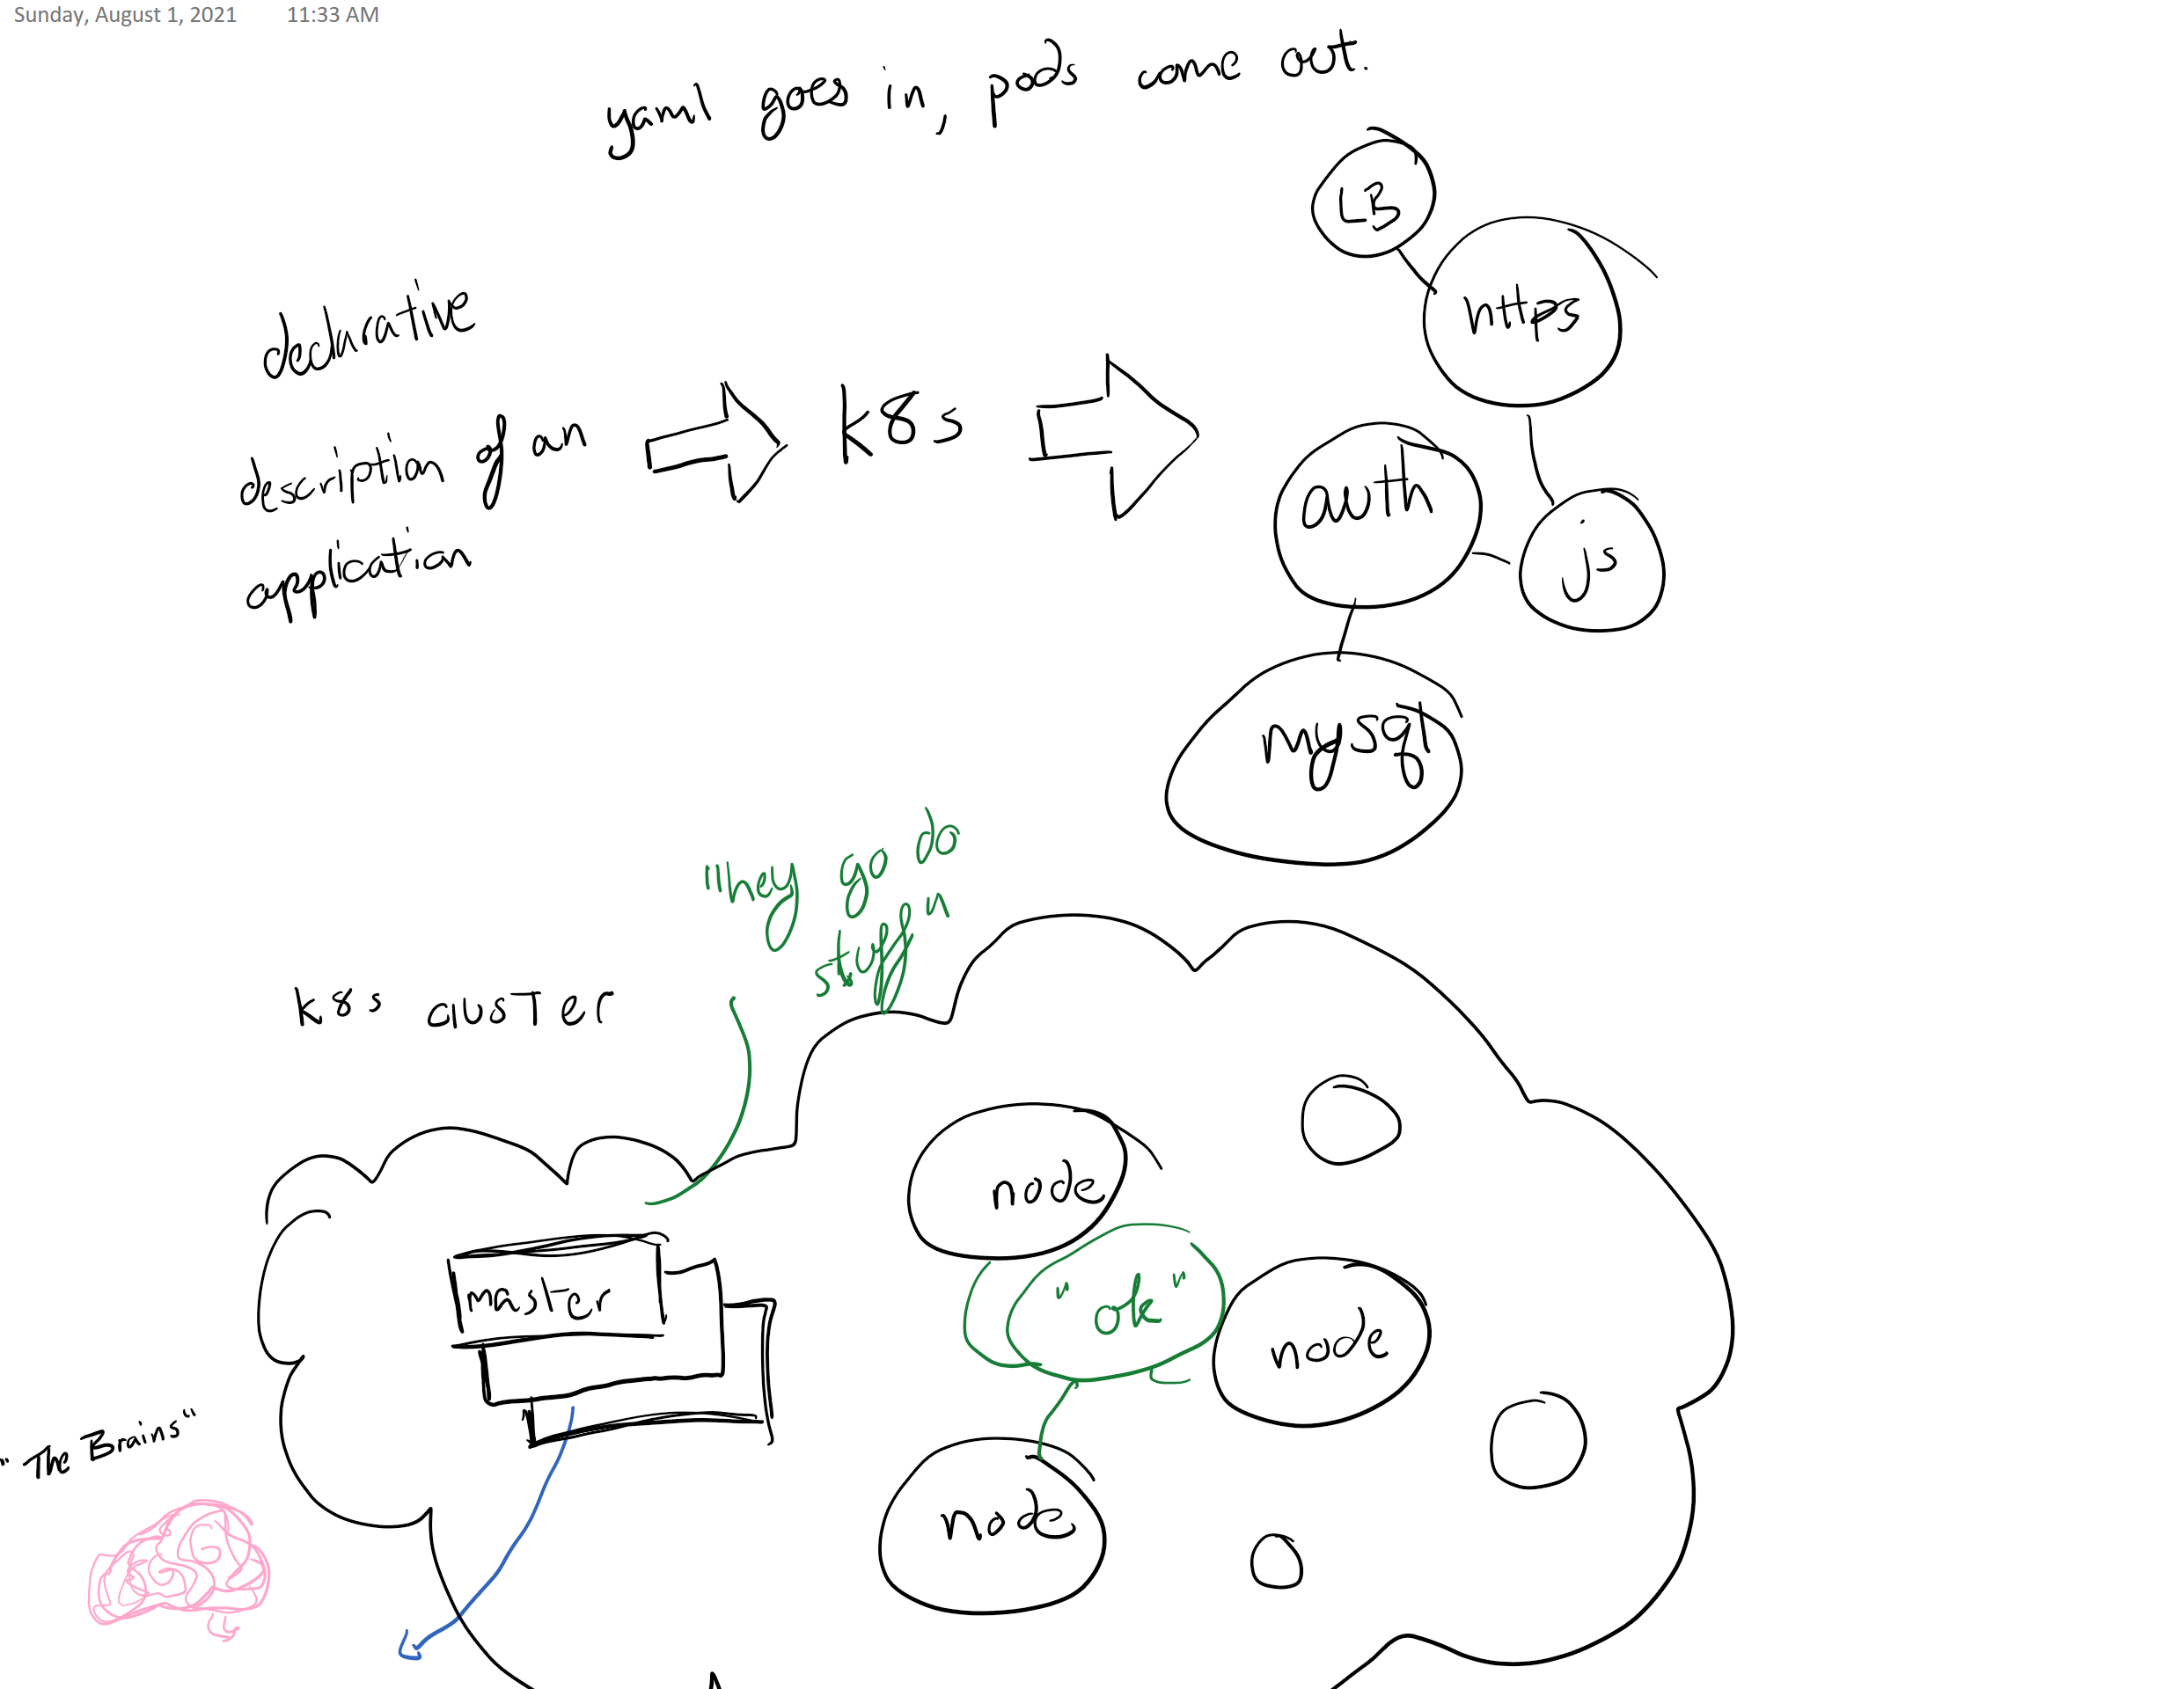 Sunday, August 1, 2021 11:33 AM
yaml goes in, pods come out.
declarative
description of an
application
k8s
LB
https
auth
js
mysql
"hey go do
stuff"
k8s clusTer
node
master
"ok"
node
"The Brains"
node